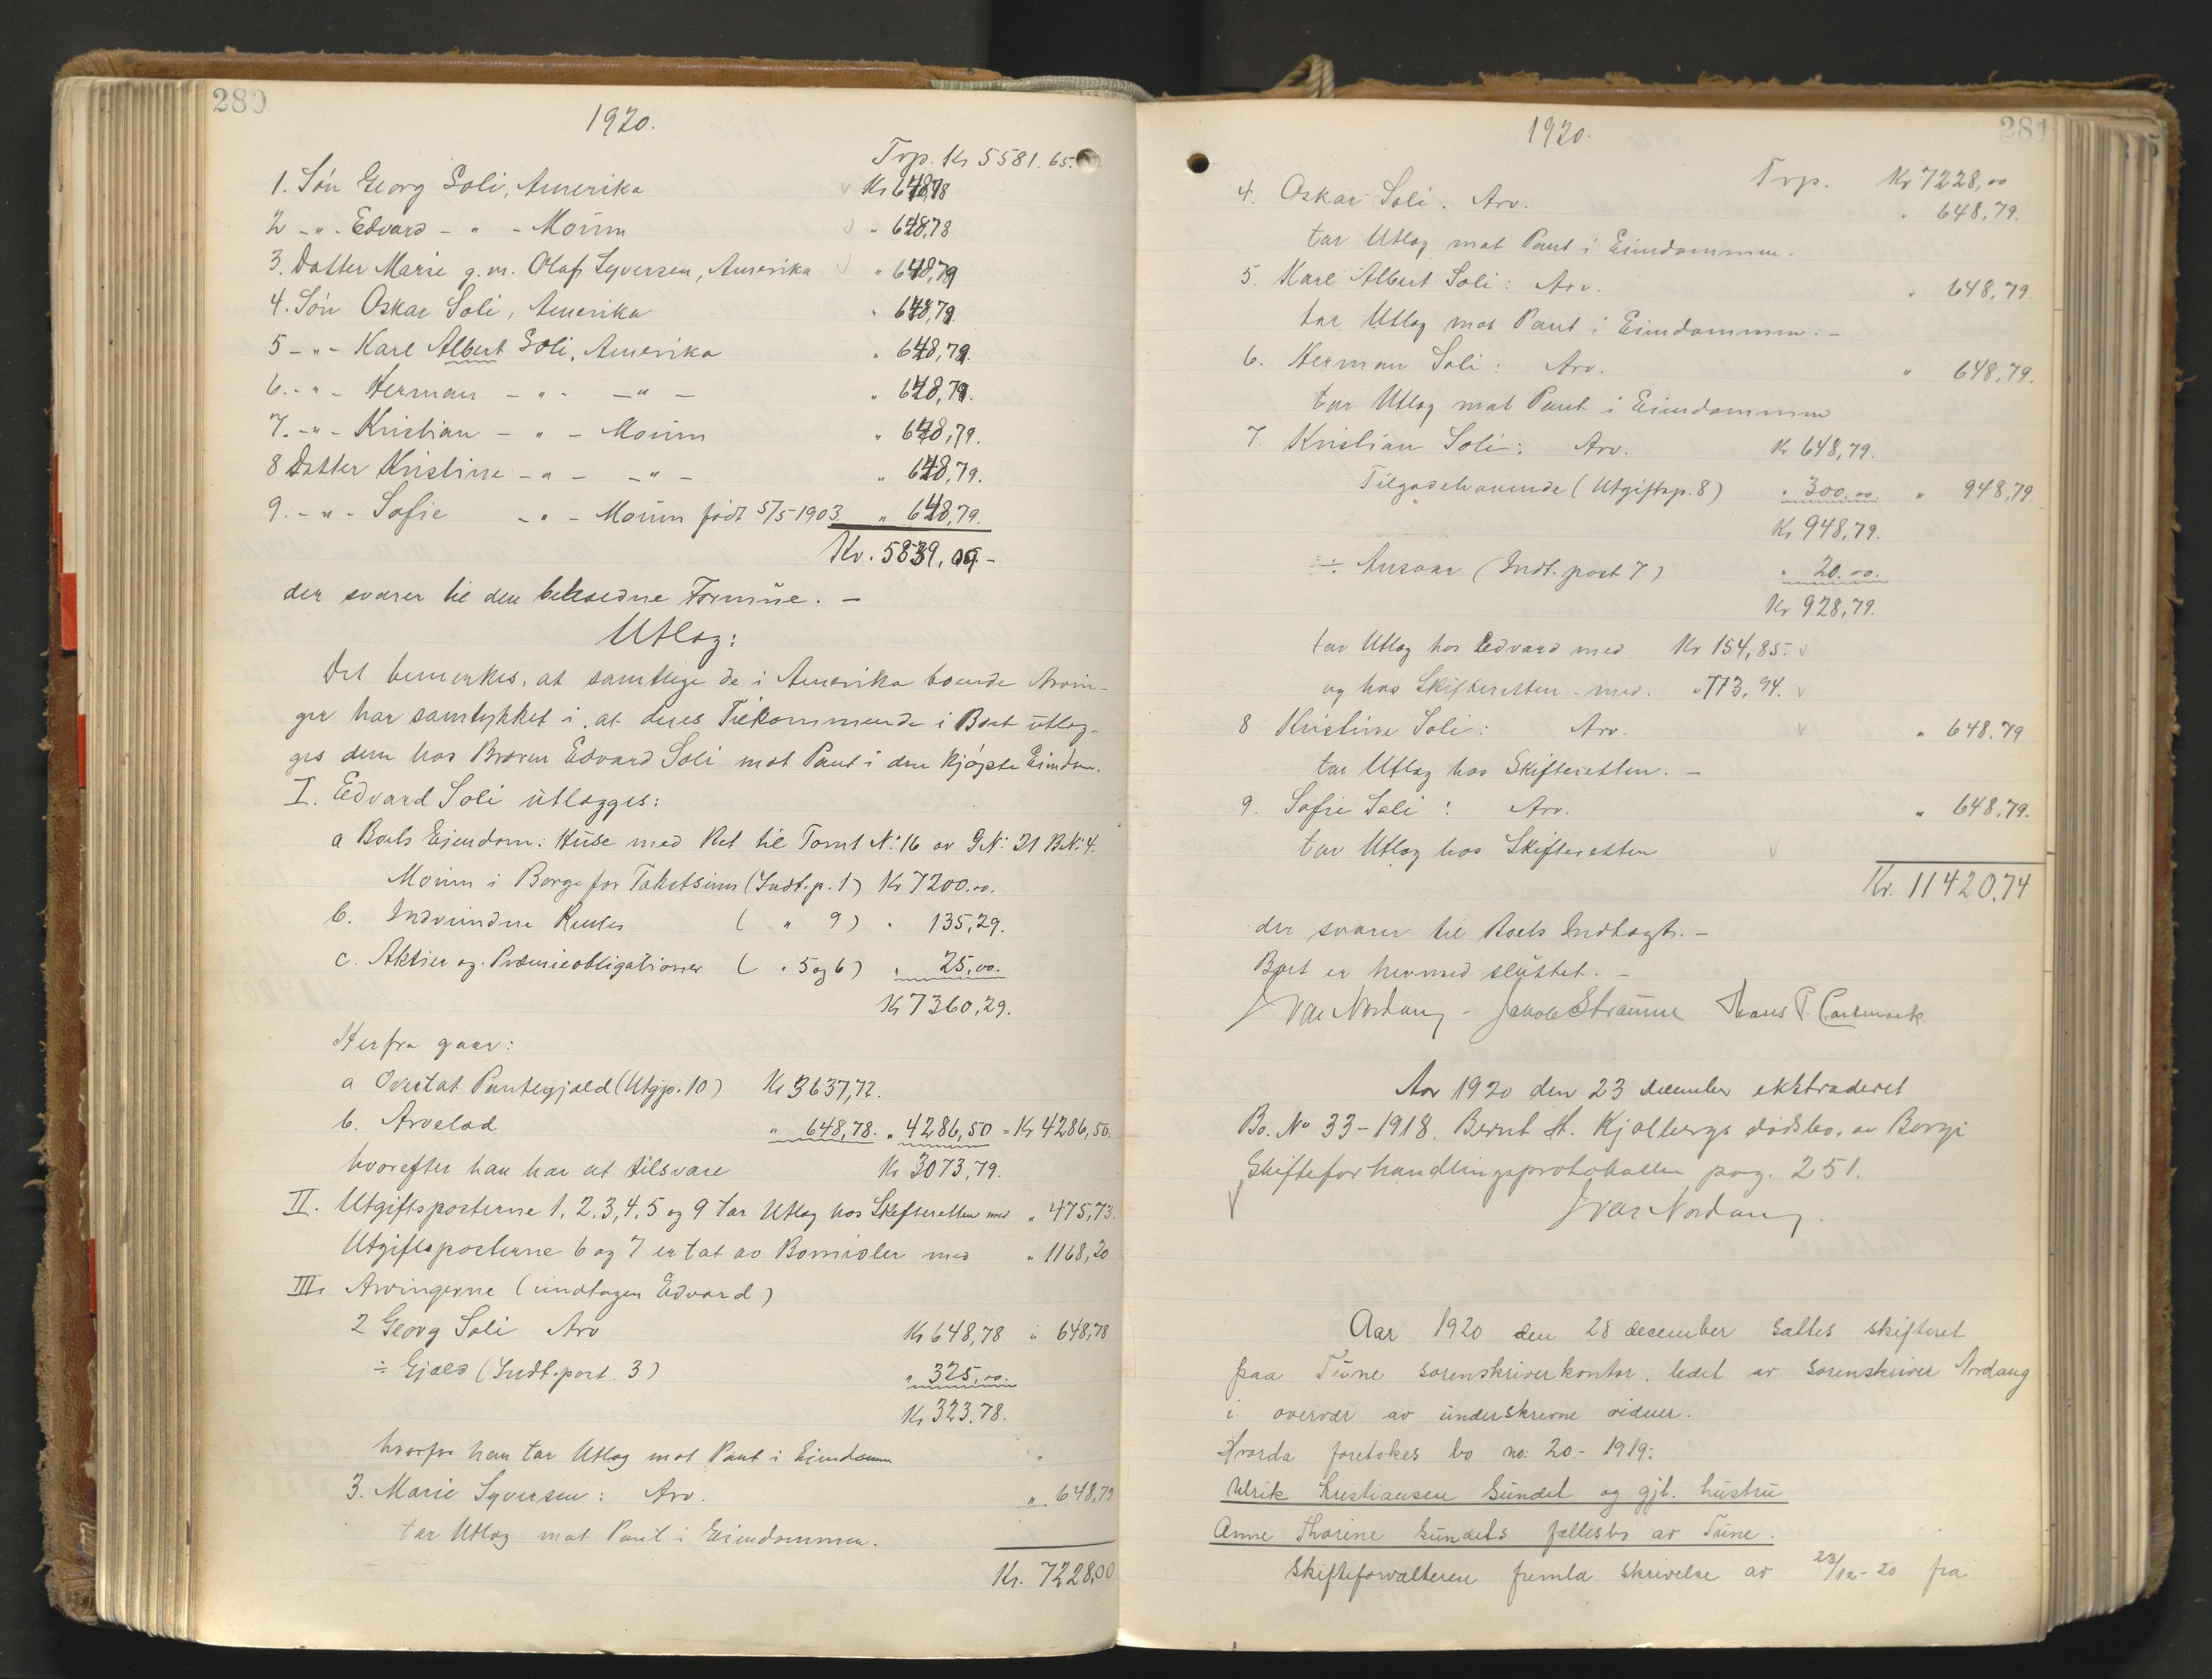 280
1920.
Trp. Kr 5581.65.
1. Søn Georg Soli, Amerika Kr 648,78
2 -"- Edvard -"- Moum " 648,78
3. Datter Marie g.m. Olaf Syversen, Amerika " 648,79
4. Søn Oskar Soli, Amerika " 648,79.
5 -"- Karl Albert Soli, Amerika " 648,79.
6. -"- Herman -"- -"- " 648,79.
7. -"- Kristian -"- Moum " 648,79.
8 Datter Kristine -"- -"- " 648,79.
9. -"- Sofie -"- Moum født 5/5 1903 " 648,79.
Kr. 5839,09.-
der svarer til den beholdne Formue. -
Utlæg:
Det bemerkes, at samtlige de i Amerika boende Arvin-
ger har samtykket i, at deres Tilkommende i Boet utlæg-
ges dem hos Broren Edvard Soli mot Pant i den kjøpte Eiendom.
I. Edvard Soli utlægges:
a Boets Eiendom: Huse med Ret til Tomt No. 16 av G.No. 21 B.No. 4.
Moum i Borge for Takstsum (Indt.p. 1) Kr 7200.00.
b. Indvundne Renter ( " 9) " 135,29.
c. Aktier og Præmieobligationer ( " 5 og 6) " 25,00.
Kr 7360,29.
Herfra gaar:
a Overtat Pantegjæld (Utgp. 10) Kr 3637,72.
b. Arvelod " 648,78. " 4286,50 = Kr 4286,50.
hvorefter han har at tilsvare Kr 3073,79.
II. Utgiftsposterne 1, 2, 3, 4, 5 og 9 tar Utlæg hos Skifteretten med " 475,73.
Utgiftsposterne 6 og 7 er tat av Bomidler med " 1168,20
III. Arvingerne (undtagen Edvard)
2 Georg Soli Arv Kr 648,78 " 648,78
÷ Gjæld (Indt.post. 3) " 325,00.
Kr 323,78.
hvorfor han tar Utlæg mot Pant i Eiendommen
3. Marie Syversen: Arv. " 648,79
tar Utlæg mot Pant i Eiendommen.
Kr. 7228,00
281
1920.
Trp. Kr 7228,00
4. Oskar Soli. Arv. " 648,79.
tar Utlæg mot Pant i Eiendommen.
5. Karl Albert Soli: Arv. " 648,79.
tar Utlæg mot Pant i Eiendommen. -
6. Herman Soli: Arv. " 648,79.
tar Utlæg mot Pant i Eiendommen
7. Kristian Soli: Arv. Kr 648,79.
Tilgodehavende (Utgiftsp. 8) " 300,00. " 948,79.
Kr 948,79.
÷ Ansvar (Indt. post 7) " 20.00.
Kr 928,79.
tar Utlæg hos Edvard med Kr 154,85.
og hos Skifteretten med. " 773,94.
8 Kristine Soli: Arv. " 648,79
tar Utlæg hos Skifteretten. -
9. Sofie Soli: Arv. " 648,79.
tar Utlæg hos Skifteretten
Kr. 11420,74
der svarer til Boets Indtægt. -
Boet er hermed sluttet. -
Ivar Nordang - Jakob Straume Hans P. Carlmark.
Aar 1920 den 23 december ekstraderet
Bo. No 33-1918. Bernt H. Kjølbergs dødsbo, av Borge
Skifteforhandlingsprotokollen pag. 251.
Ivar Nordang.
Aar 1920 den 28 december sattes skifteret
paa Tune sorenskriverkontor, ledet av sorenskriver Nordang
i overvær av underskrevne vidner.
Hvorda foretokes bo no: 20-1919:
Ulrik Kristiansen Sundet og gjl. hustru
Anne Thorine Sundets fællesbo av Tune.
Skifteforvalteren fremla skrivelse av 23/12-20 fra